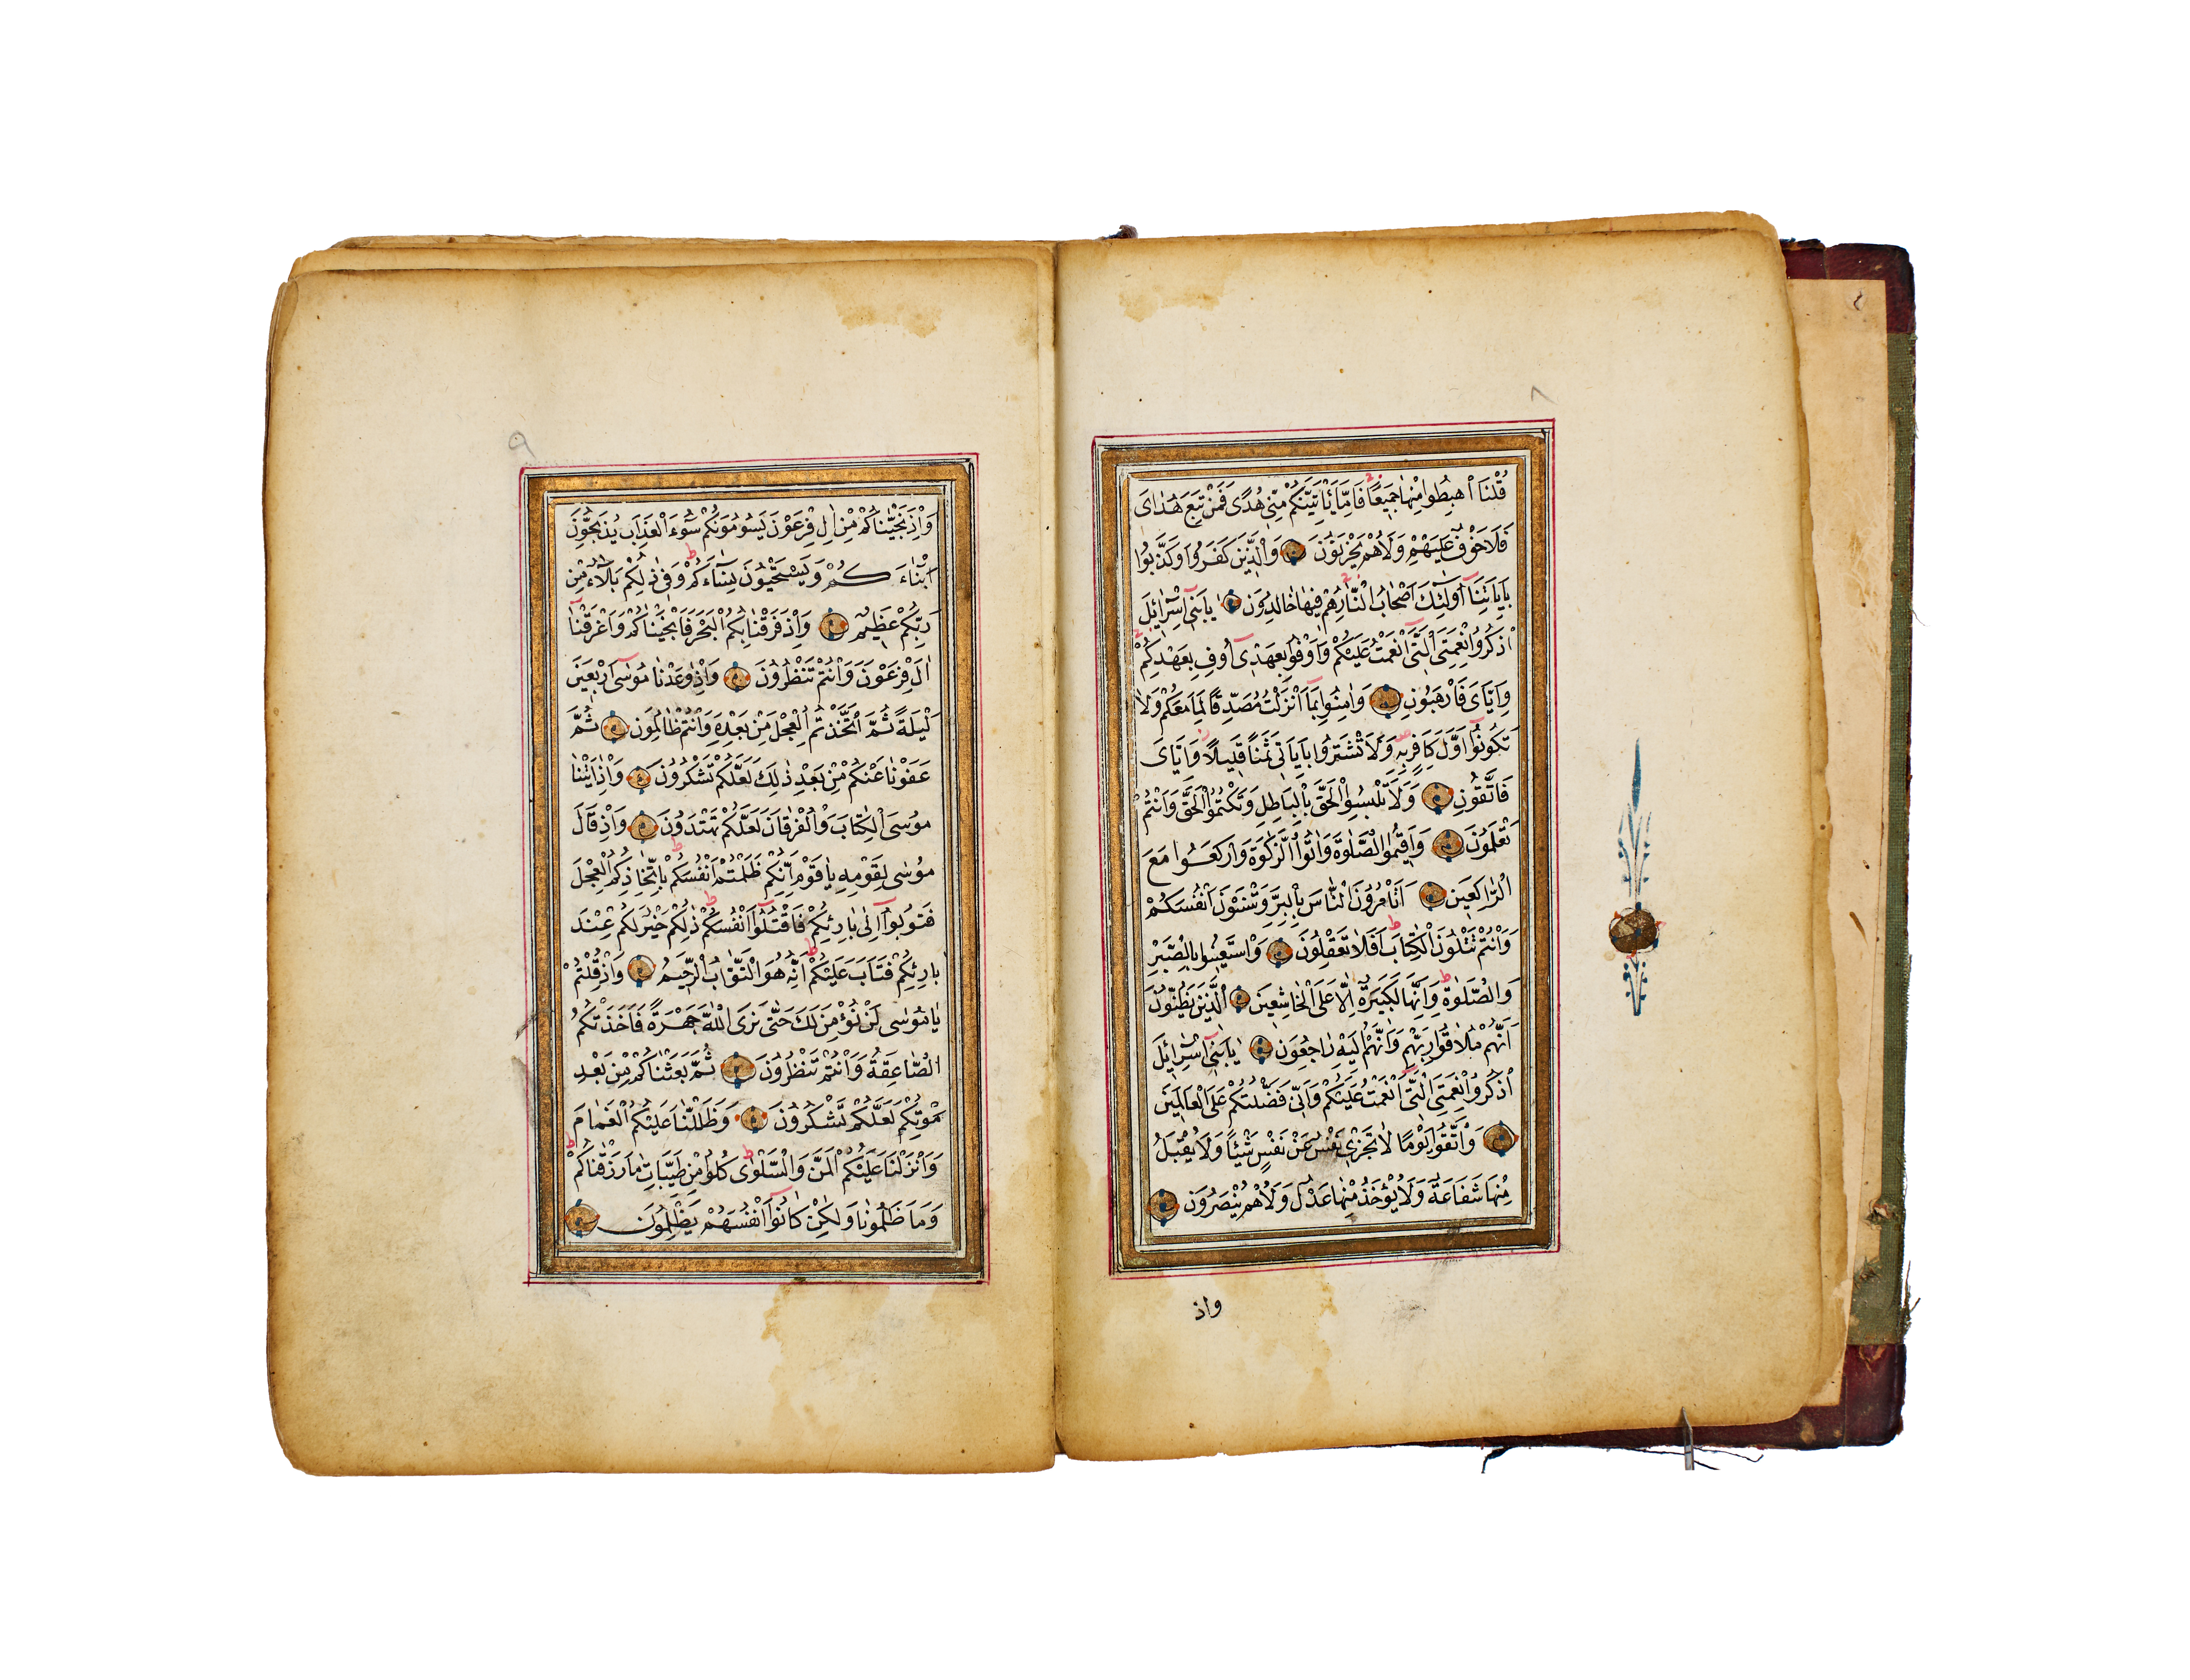 ٨
قُلْنَا اهْبِطُوا مِنْهَا جَمِيعًا فَاِمَّا يَاْتِيَنَّكُمْ مِنِّى هُدًى فَمَنْ تَبِعَ هُدَاىَ
فَلَا خَوْفٌ عَلَيْهِمْ وَلَا هُمْ يَحْزَنُونَ وَالَّذِينَ كَفَرُوا وَكَذَّبُوا
بِاٰيَاتِنَا اُولٰٓئِكَ اَصْحَابُ النَّارِ هُمْ فِيهَا خَالِدُونَ يَابَنِىٓ اِسْرَٓائِلَ
اذْكُرُوا نِعْمَتِىَ الَّتِىٓ اَنْعَمْتُ عَلَيْكُمْ وَاَوْفُوا بِعَهْدِىٓ اُوفِ بِعَهْدِكُمْ
وَاِيَّاىَ فَارْهَبُونِ وَاٰمِنُوا بِمَٓا اَنْزَلْتُ مُصَدِّقًا لِمَا مَعَكُمْ وَلَا
تَكُونُٓوا اَوَّلَ كَافِرٍ بِهِ وَلَا تَشْتَرُوا بِاٰيَاتِى ثَمَنًا قَلِيلًا وَاِيَّاىَ
فَاتَّقُونِ وَلَا تَلْبِسُوا الْحَقَّ بِالْبَاطِلِ وَتَكْتُمُوا الْحَقَّ وَاَنْتُمْ
تَعْلَمُونَ وَاَقِيمُوا الصَّلٰوةَ وَاٰتُوا الزَّكٰوةَ وَارْكَعُوا مَعَ
الرَّاكِعِينَ اَتَاْمُرُونَ النَّاسَ بِالْبِرِّ وَتَنْسَوْنَ اَنْفُسَكُمْ
وَاَنْتُمْ تَتْلُونَ الْكِتَابَ اَفَلَا تَعْقِلُونَ وَاسْتَعِينُوا بِالصَّبْرِ
وَالصَّلٰوةِ وَاِنَّهَا لَكَبِيرَةٌ اِلَّا عَلَى الْخَاشِعِينَ الَّذِينَ يَظُنُّونَ
اَنَّهُمْ مُلَاقُوا رَبِّهِمْ وَاَنَّهُمْ اِلَيْهِ رَاجِعُونَ يَابَنِىٓ اِسْرَٓائِلَ
اذْكُرُوا نِعْمَتِىَ الَّتِىٓ اَنْعَمْتُ عَلَيْكُمْ وَاَنِّى فَضَّلْتُكُمْ عَلَى الْعَالَمِينَ
وَاتَّقُوا يَوْمًا لَا تَجْزِى نَفْسٌ عَنْ نَفْسٍ شَيْئًا وَلَا يُقْبَلُ
مِنْهَا شَفَاعَةٌ وَلَا يُؤْخَذُ مِنْهَا عَدْلٌ وَلَا هُمْ يُنْصَرُونَ
واذ
٩
وَاِذْ نَجَّيْنَاكُمْ مِنْ اٰلِ فِرْعَوْنَ يَسُومُونَكُمْ سُٓوءَ الْعَذَابِ يُذَبِّحُونَ
اَبْنَٓاءَكُمْ وَيَسْتَحْيُونَ نِسَٓاءَكُمْ وَفِى ذٰلِكُمْ بَلَٓاءٌ مِنْ
رَبِّكُمْ عَظِيمٌ وَاِذْ فَرَقْنَا بِكُمُ الْبَحْرَ فَاَنْجَيْنَاكُمْ وَاَغْرَقْنَٓا
اٰلَ فِرْعَوْنَ وَاَنْتُمْ تَنْظُرُونَ وَاِذْ وٰعَدْنَا مُوسٰٓى اَرْبَعِينَ
لَيْلَةً ثُمَّ اتَّخَذْتُمُ الْعِجْلَ مِنْ بَعْدِهِ وَاَنْتُمْ ظَالِمُونَ ثُمَّ
عَفَوْنَا عَنْكُمْ مِنْ بَعْدِ ذٰلِكَ لَعَلَّكُمْ تَشْكُرُونَ وَاِذْ اٰتَيْنَا
مُوسَى الْكِتَابَ وَالْفُرْقَانَ لَعَلَّكُمْ تَهْتَدُونَ وَاِذْ قَالَ
مُوسٰى لِقَوْمِهِ يَاقَوْمِ اِنَّكُمْ ظَلَمْتُمْ اَنْفُسَكُمْ بِاتِّخَاذِكُمُ الْعِجْلَ
فَتُوبُٓوا اِلٰى بَارِئِكُمْ فَاقْتُلُٓوا اَنْفُسَكُمْ ذٰلِكُمْ خَيْرٌ لَكُمْ عِنْدَ
بَارِئِكُمْ فَتَابَ عَلَيْكُمْ اِنَّهُ هُوَ التَّوَّابُ الرَّحِيمُ وَاِذْ قُلْتُمْ
يَامُوسٰى لَنْ نُؤْمِنَ لَكَ حَتّٰى نَرَى اللّٰهَ جَهْرَةً فَاَخَذَتْكُمُ
الصَّاعِقَةُ وَاَنْتُمْ تَنْظُرُونَ ثُمَّ بَعَثْنَاكُمْ مِنْ بَعْدِ
مَوْتِكُمْ لَعَلَّكُمْ تَشْكُرُونَ وَظَلَّلْنَا عَلَيْكُمُ الْغَمَامَ
وَاَنْزَلْنَا عَلَيْكُمُ الْمَنَّ وَالسَّلْوٰى كُلُوا مِنْ طَيِّبَاتِ مَا رَزَقْنَاكُمْ
وَمَا ظَلَمُونَا وَلٰكِنْ كَانُٓوا اَنْفُسَهُمْ يَظْلِمُونَ